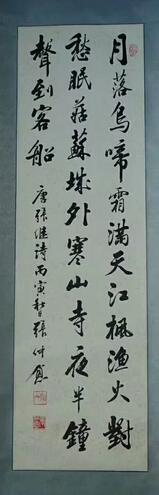 月落烏啼霜滿天江楓漁火對
愁眠菇蘇城外寒山寺夜半鐘
聲到客船
唐張继诗丙寅秋張